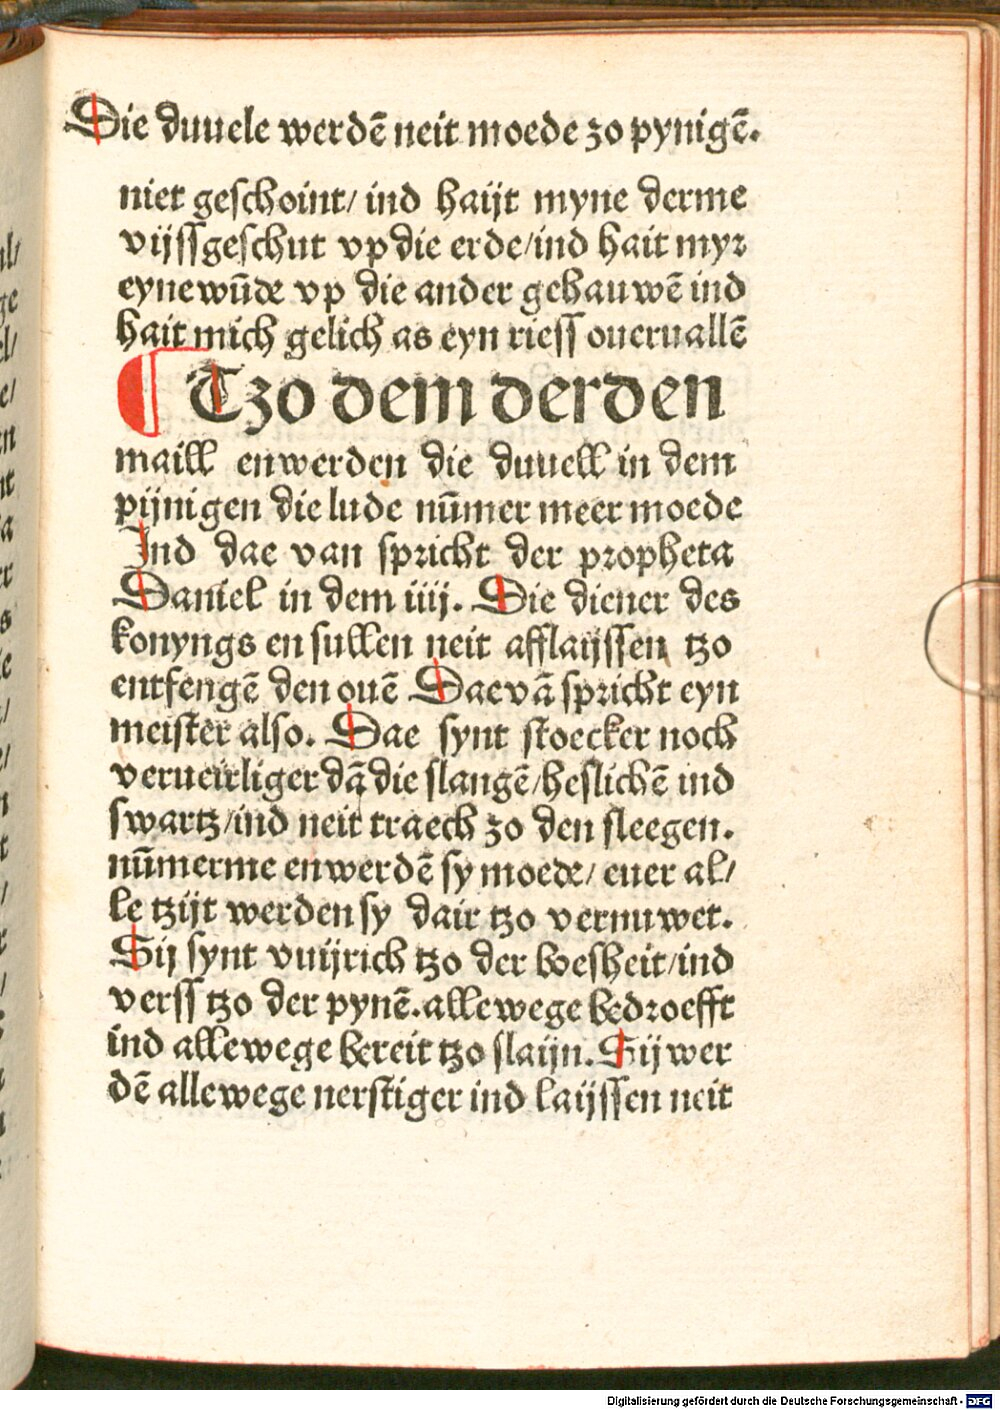 Die duuele werdē neit moede zo pynigē.
niet geschoint/ ind haijt myne derme
vijssgeschut vp die erde/ind hait myr
eyne wūde vp die ander gehauwē ind
hait mich gelich as eyn riess oueruallē
¶ Tzo dem derden
maill enwerden die duuell in dem
pijnigen die lude nūmer meer moede
Ind dae van spricht der propheta
Daniel in dem iiij. Die diener des
konyngs en sullen neit afflaijssen tzo
entfengē den ouē Daevā spricht eyn
meister also. Dae synt stoecker noch
verueirliger dā die slangē/heslichē ind
swartz/ind neit traech zo den sleegen.
nūmerme enwerdē sy moede/ euer al/
le tzijt werden sy dair tzo vernuwet.
Sij synt vuijrich tzo der boesheit/ind
verss tzo der pynē. allewege bedroefft
ind allewege bereit tzo slaijn. Sij wer
dē allewege nerstiger ind laijssen neit
Digitalisierung gefördert durch die Deutsche Forschungsgemeinschaft - DFG